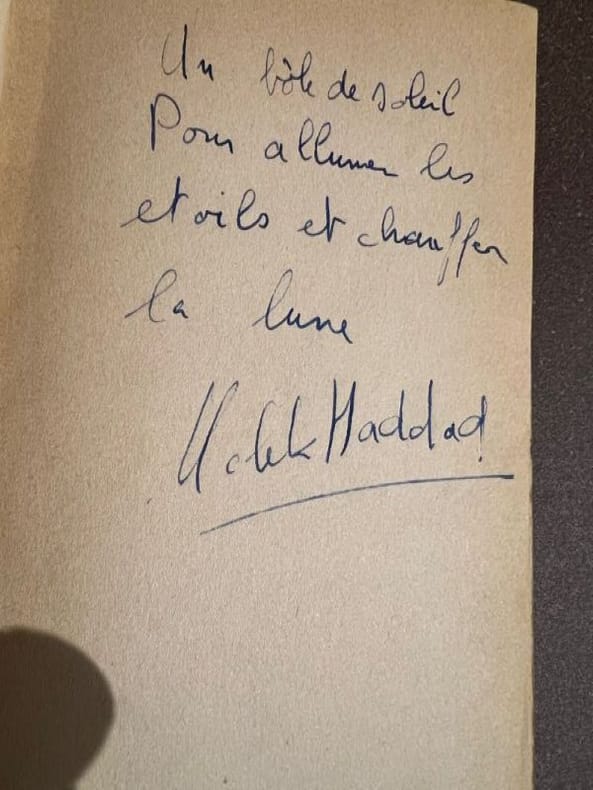 Un bôle de soleil
Pour allumer les
etoils et chauffer
la lune
Malek Haddad